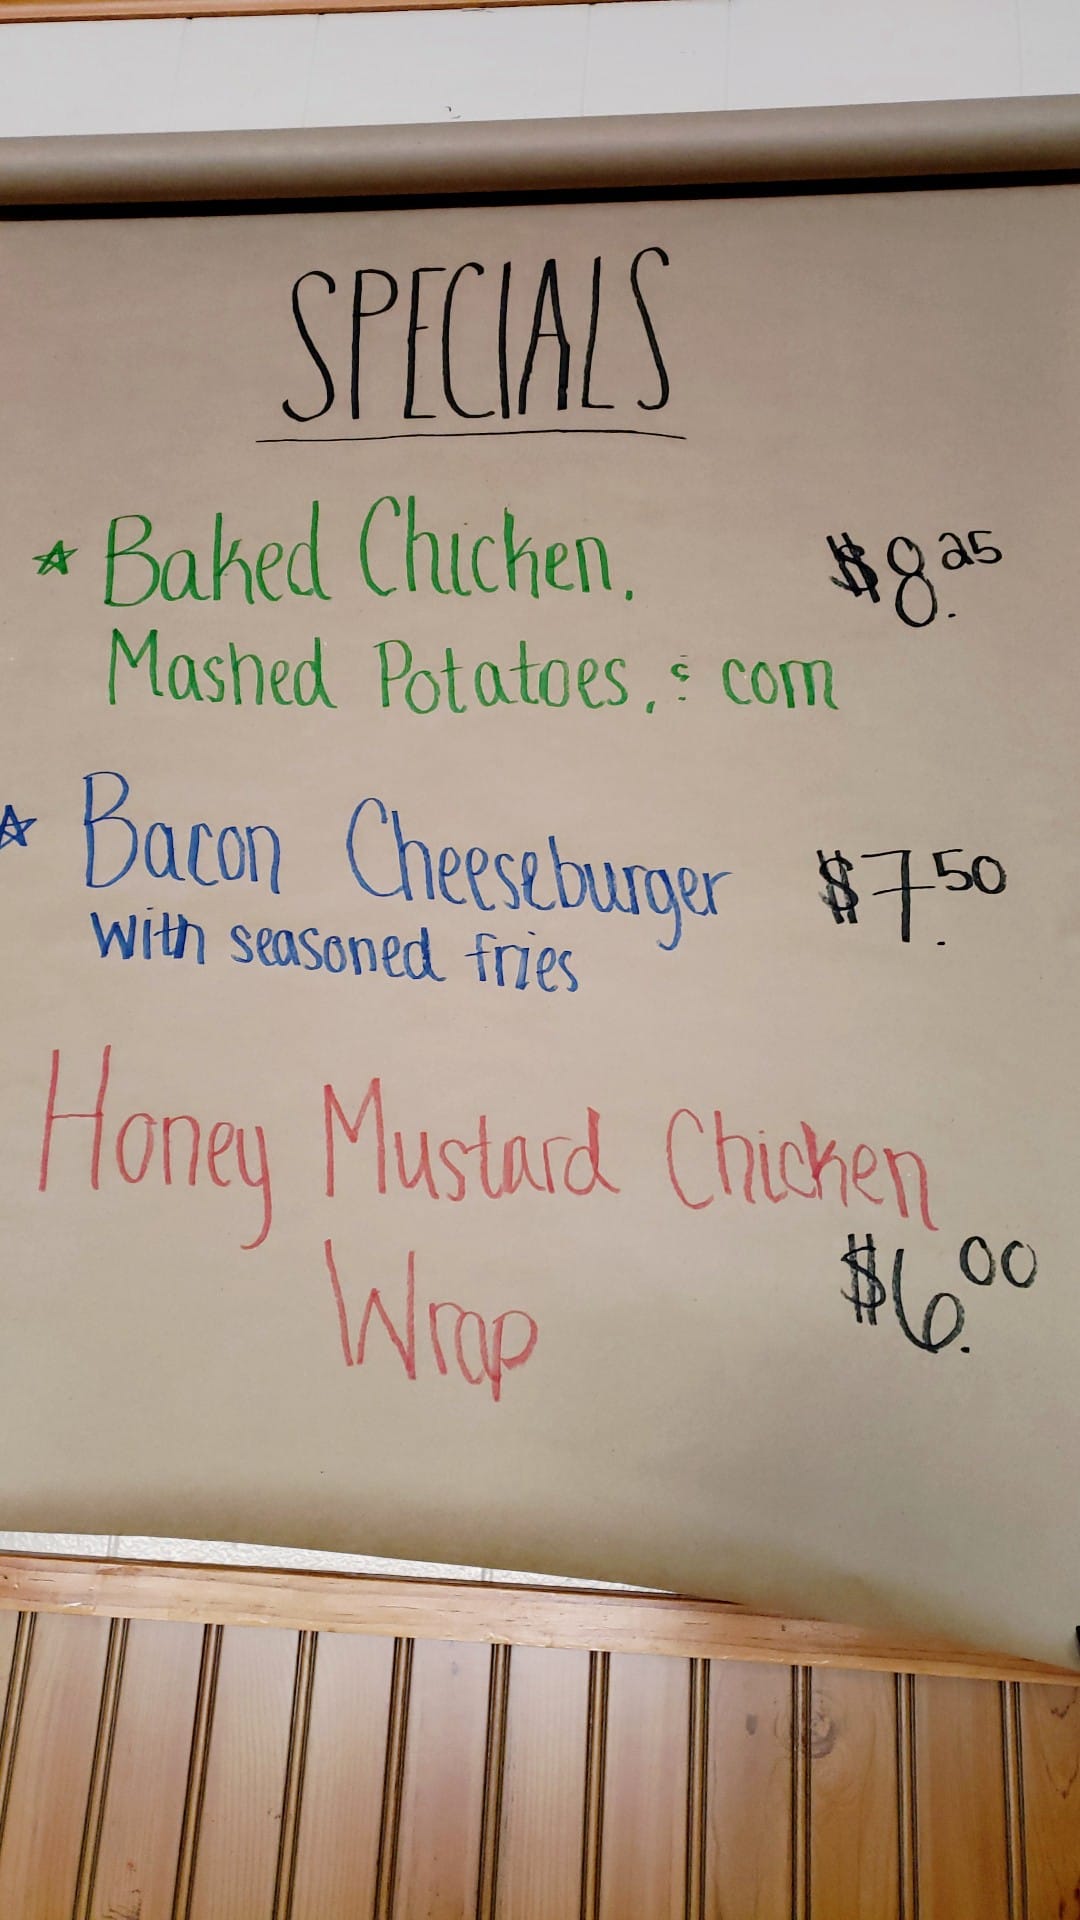 SPECIALS
☆ Baked Chicken, $8.25
Mashed Potatoes, & corn
☆ Bacon Cheeseburger $7.50
with seasoned fries
Honey Mustard Chicken
Wrap $6.00